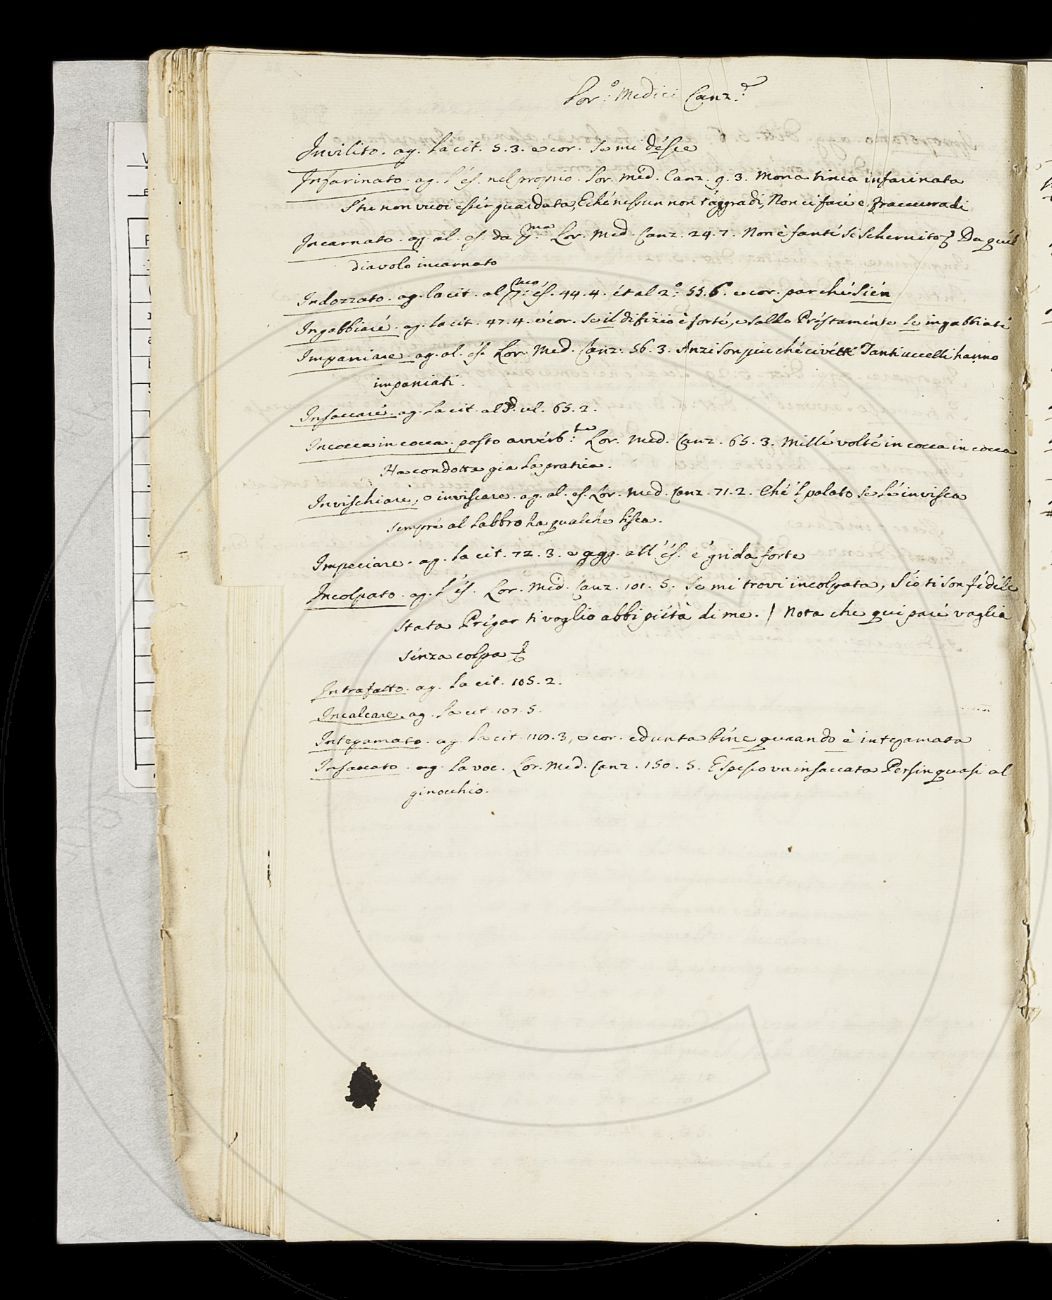 Lor.o Medici Canz.e
Invilito. ag. la cit. 5. 3. e cor. se mi desse
Infarinato. ag. l'es. nel proprio. Lor. Med. Canz. 9. 3. Mona tinca infarinata
S'tu non vuoi esser guardata, E ché nessun non t'aggradi, Non ci far e
Incarnato. ag. al. es. da Lor. Med. Canz. 24. 7. Non è fante sì schernito Da quel
diavolo incarnato
Indozzato. ag. la cit. al es. 44. 4. et al 2.o 55. 6. e cor. par ché sien
Ingabbiare. ag. la cit. 47. 4. e cor. Se il difizio è forte, e saldo Prestamente le ingabbiate
Impaniare. ag. al. es. Lor. Med. Canz. 56. 3. Anzi son più ché civette Tanti uccelli hanno
impaniati.
Insaccare. ag. la cit. al 65. 2.
In cocca in cocca. posto avverb.te Lor. Med. Canz. 65. 3. Mille volte in cocca in cocca
Ha condotta già la pratica.
Invischiare, o inviscare. ag. al. es. Lor. Med. Canz. 71. 2. Ché 'l palato se le invisca
Sempre al labbro ha qualche lisca.
Impeciare. ag. la cit. 72. 3. e agg. all'es. e grida forte
Incolpato. ag. l'es. Lor. Med. Canz. 101. 5. Se mi trovi incolpata, S'io ti son fedele
stata Pregar ti voglio abbi pietà di me. / Nota che qui pare vaglia
senza colpa
Intrafatto. ag. la cit. 105. 2.
Incalcare. ag. la cit. 107. 5.
Integamato. ag. la cit. 3, e cor. ed unta bene quando è integamata
Insaccato. ag. la voc. Lor. Med. Canz. 150. 5. E spesso va insaccata Persin quasi al
ginocchio.